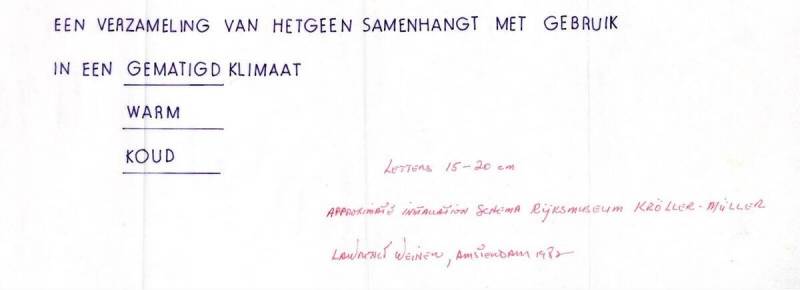 EEN VERZAMELING VAN HETGEEN SAMENHANGT MET GEBRUIK
IN EEN GEMATIGD KLIMAAT
WARM
KOUD
LETTERS 15-20 cm
APPROXIMATE INSTALLATION SCHEMA RIJKSMUSEUM KRÖLLER-MÜLLER
LAWRENCE WEINER, AMSTERDAM 1982